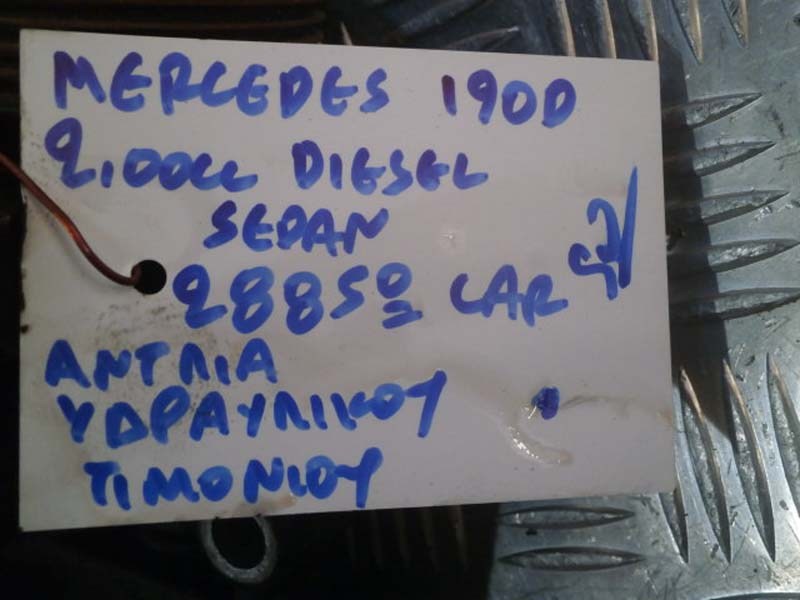 MERCEDES 190D
2,100cc DIESEL
SEDAN
28850 CAR
ΑΝΤΛΙΑ
ΥΔΡΑΥΛΙΚΟΥ
ΤΙΜΟΝΙΟΥ